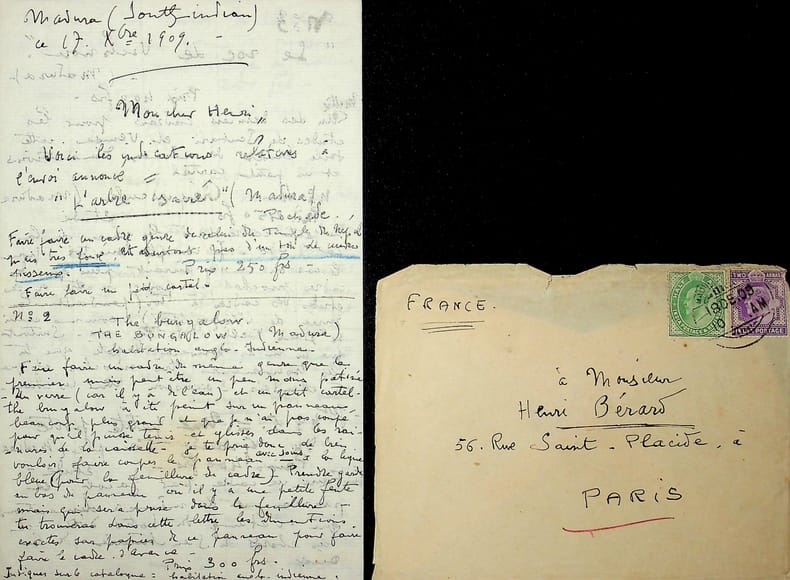 Madura (South indian)
ce 17. Xbre 1909.
Mon cher Henri,
Voici les indications relatives à
l'envoi annoncé =
"L'arbre sacré" (Madura)
Pochade.
Faire faire un cadre genre de celui du Temple du
mais très foncé et surtout pas d'un ton de
dessous.
Prix 250 frs
Faire faire un petit cartel.
N° 2
The bungalow.
THE BUNGALOW (Madura)
habitation anglo-Indienne.
Faire faire un cadre du même genre que le
premier mais peut être un peu moins patiné
- Un verre (car il y a de l'eau) et un petit cartel -
the bungalow a été peint sur un panneau
beaucoup plus grand et que je n'ai pas coupé
pour qu'il puisse tenir et glisser dans les rai-
nures de la caissette - je te prie donc de bien
vouloir faire couper le panneau avec soin à la ligne
bleue (pour la feuillure du cadre) Prendre garde
en bas du panneau où il y a une petite fente
mais qui sera prise dans la feuillure -
tu trouveras dans cette lettre les dimentions
exactes sur papier de ce panneau pour faire
faire le cadre d'avance - Prix 300 frs.
Indiquer sur le catalogue = habitation anglo-indienne.
FRANCE.
HALF ANNA
TWO ANNAS
INDIA POSTAGE
18 DE 09
10 AM
à Monsieur
Henri Bérard
56. Rue Saint-Placide, à
PARIS